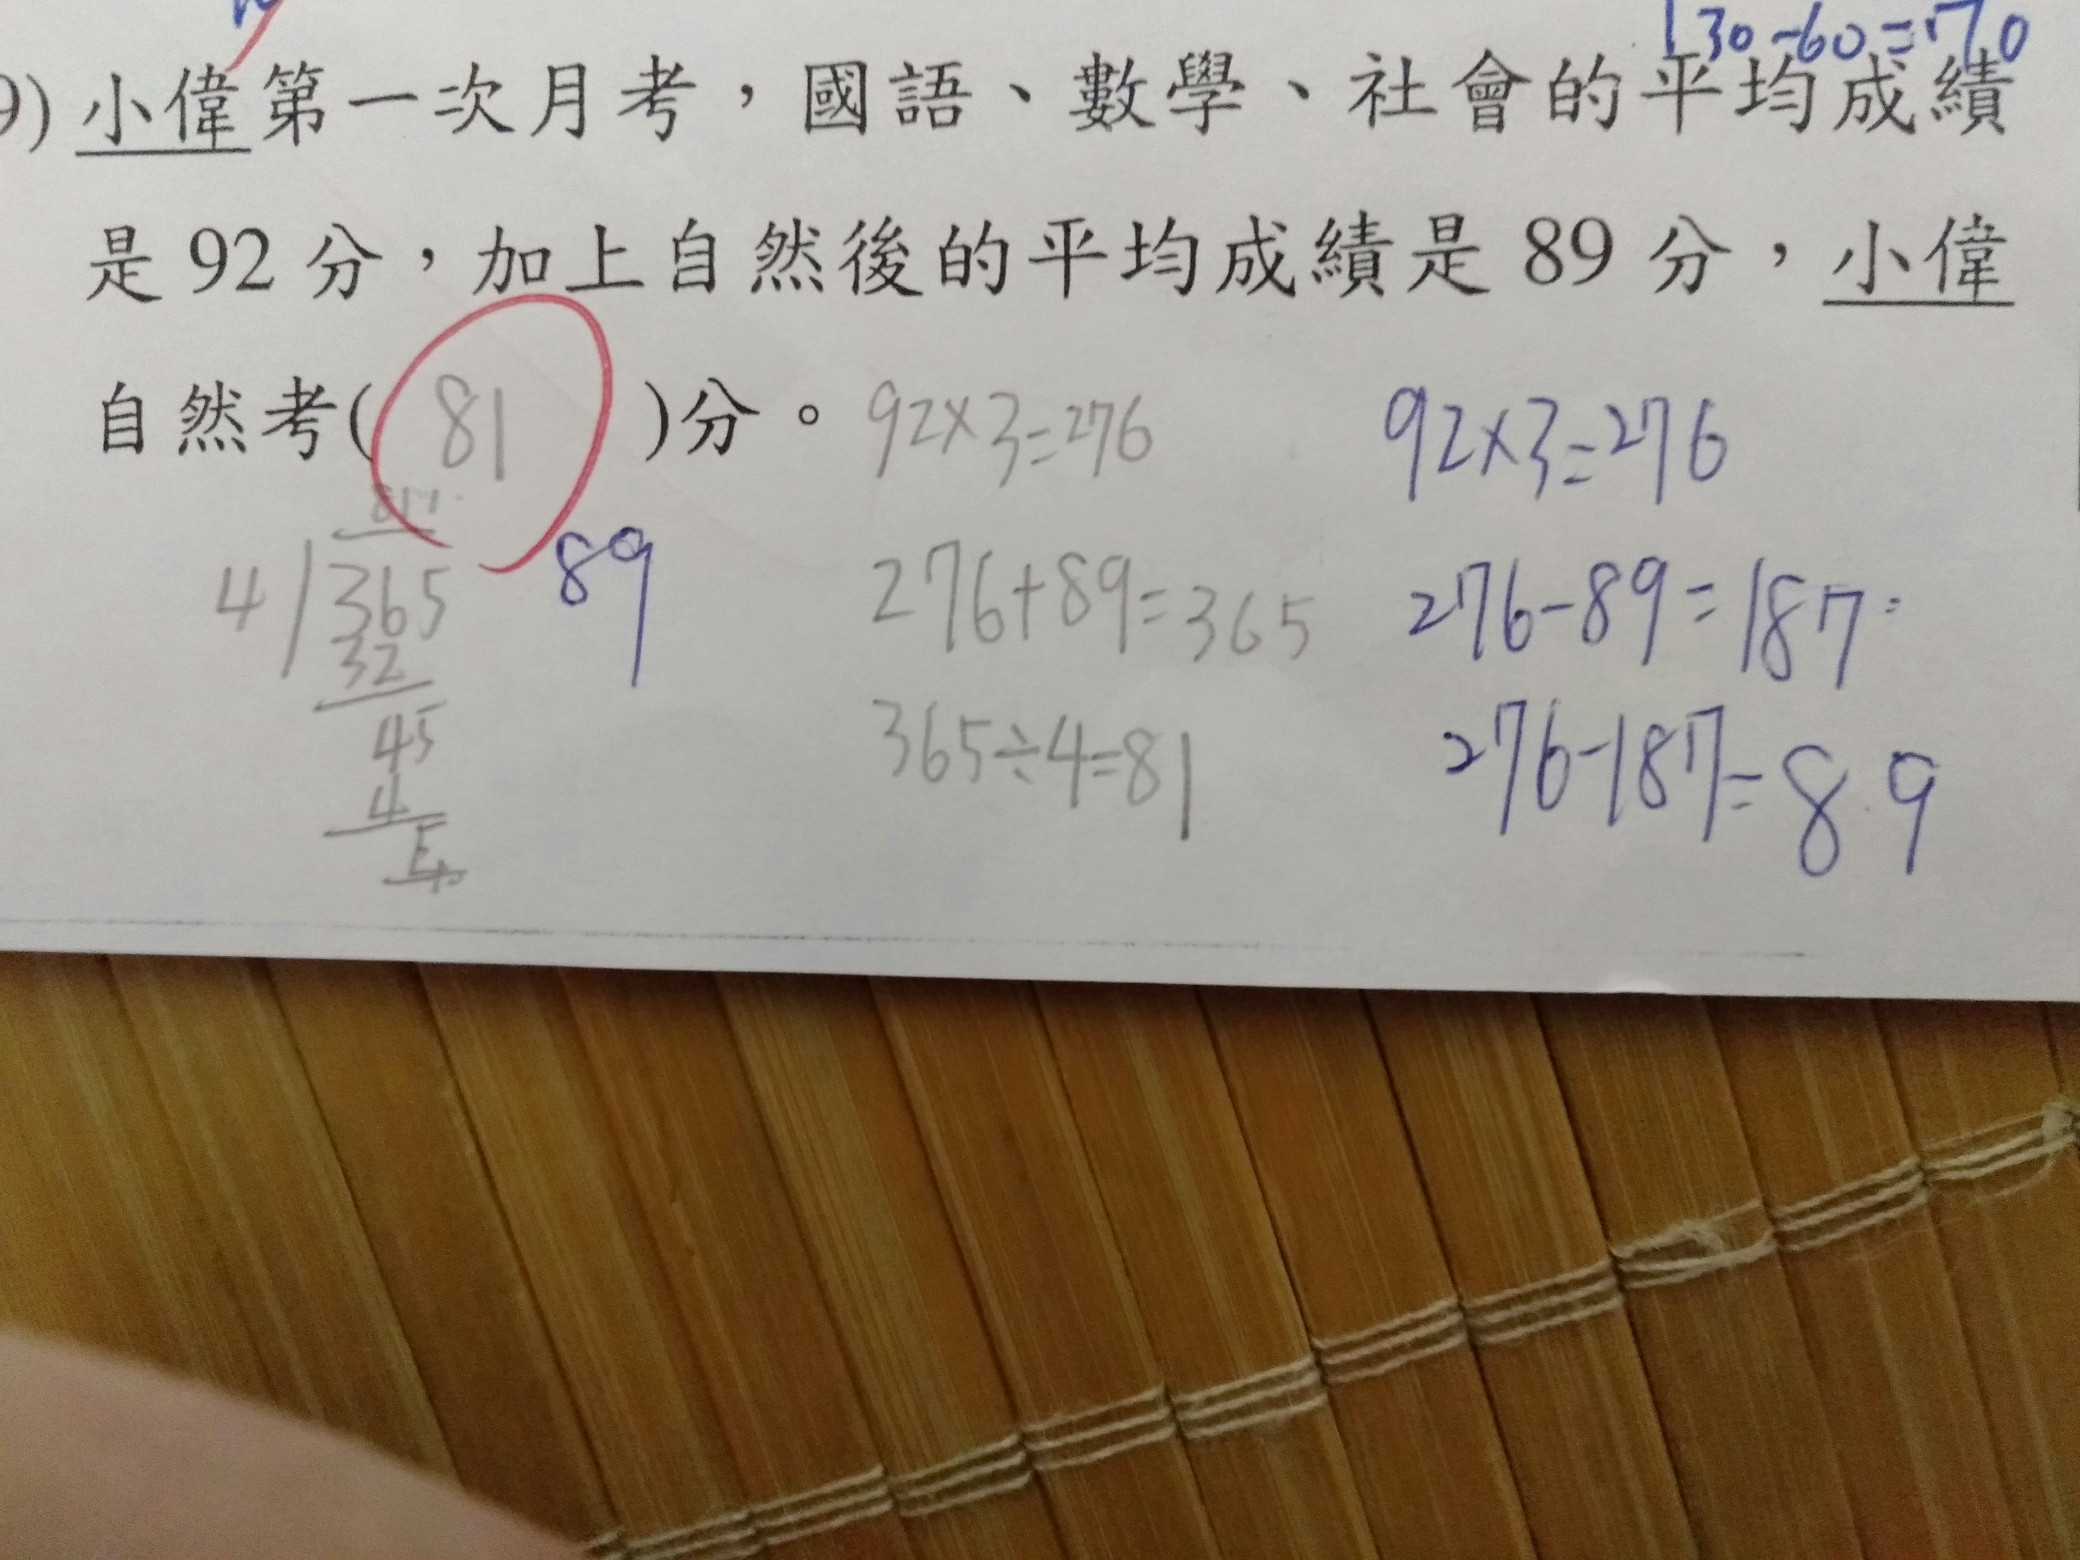 130-60=70
9) 小偉第一次月考，國語、數學、社會的平均成績
是 92 分，加上自然後的平均成績是 89 分，小偉
自然考( 81 )分。 92×3=276 92×3=276
4 365 89 276+89=365 276-89=187
32
45 365÷4=81 276-187=89
4